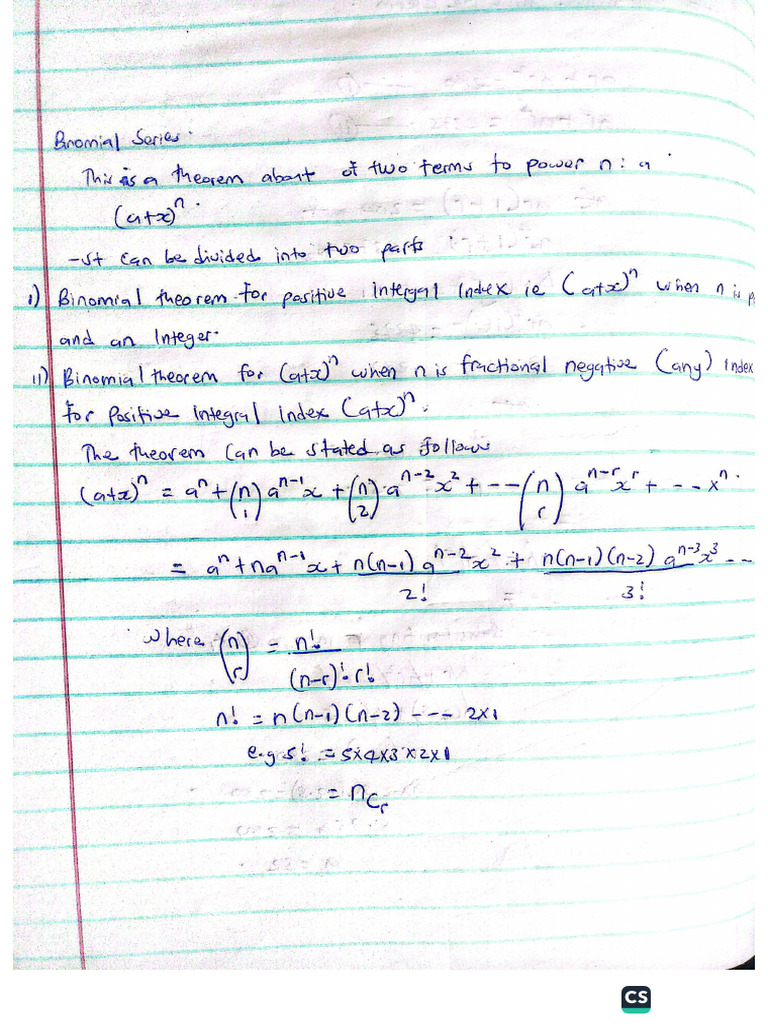 Bnomial Series.
This is a theorem about of two terms to power n : a
(a+x)ⁿ.
-It can be divided into two parts
i) Binomial theorem for positive intergal Index ie (a+x)ⁿ when n is p
and an Integer.
ii) Binomial theorem for (a+x)ⁿ when n is fractional negative (any) index
for positive Integral Index (a+x)ⁿ.
The theorem can be stated as follows
(a+x)ⁿ = aⁿ + (n 1) aⁿ⁻¹x + (n 2) aⁿ⁻²x² + --- (n r) aⁿ⁻ʳxʳ + -- xⁿ.
= aⁿ + naⁿ⁻¹x + n(n-1) aⁿ⁻²x² / 2! + n(n-1)(n-2) aⁿ⁻³x³ / 3! ---
where (n r) = n! / (n-r)! r!
n! = n(n-1)(n-2) --- 2×1
e.g 5! = 5×4×3×2×1
= nCr
CS